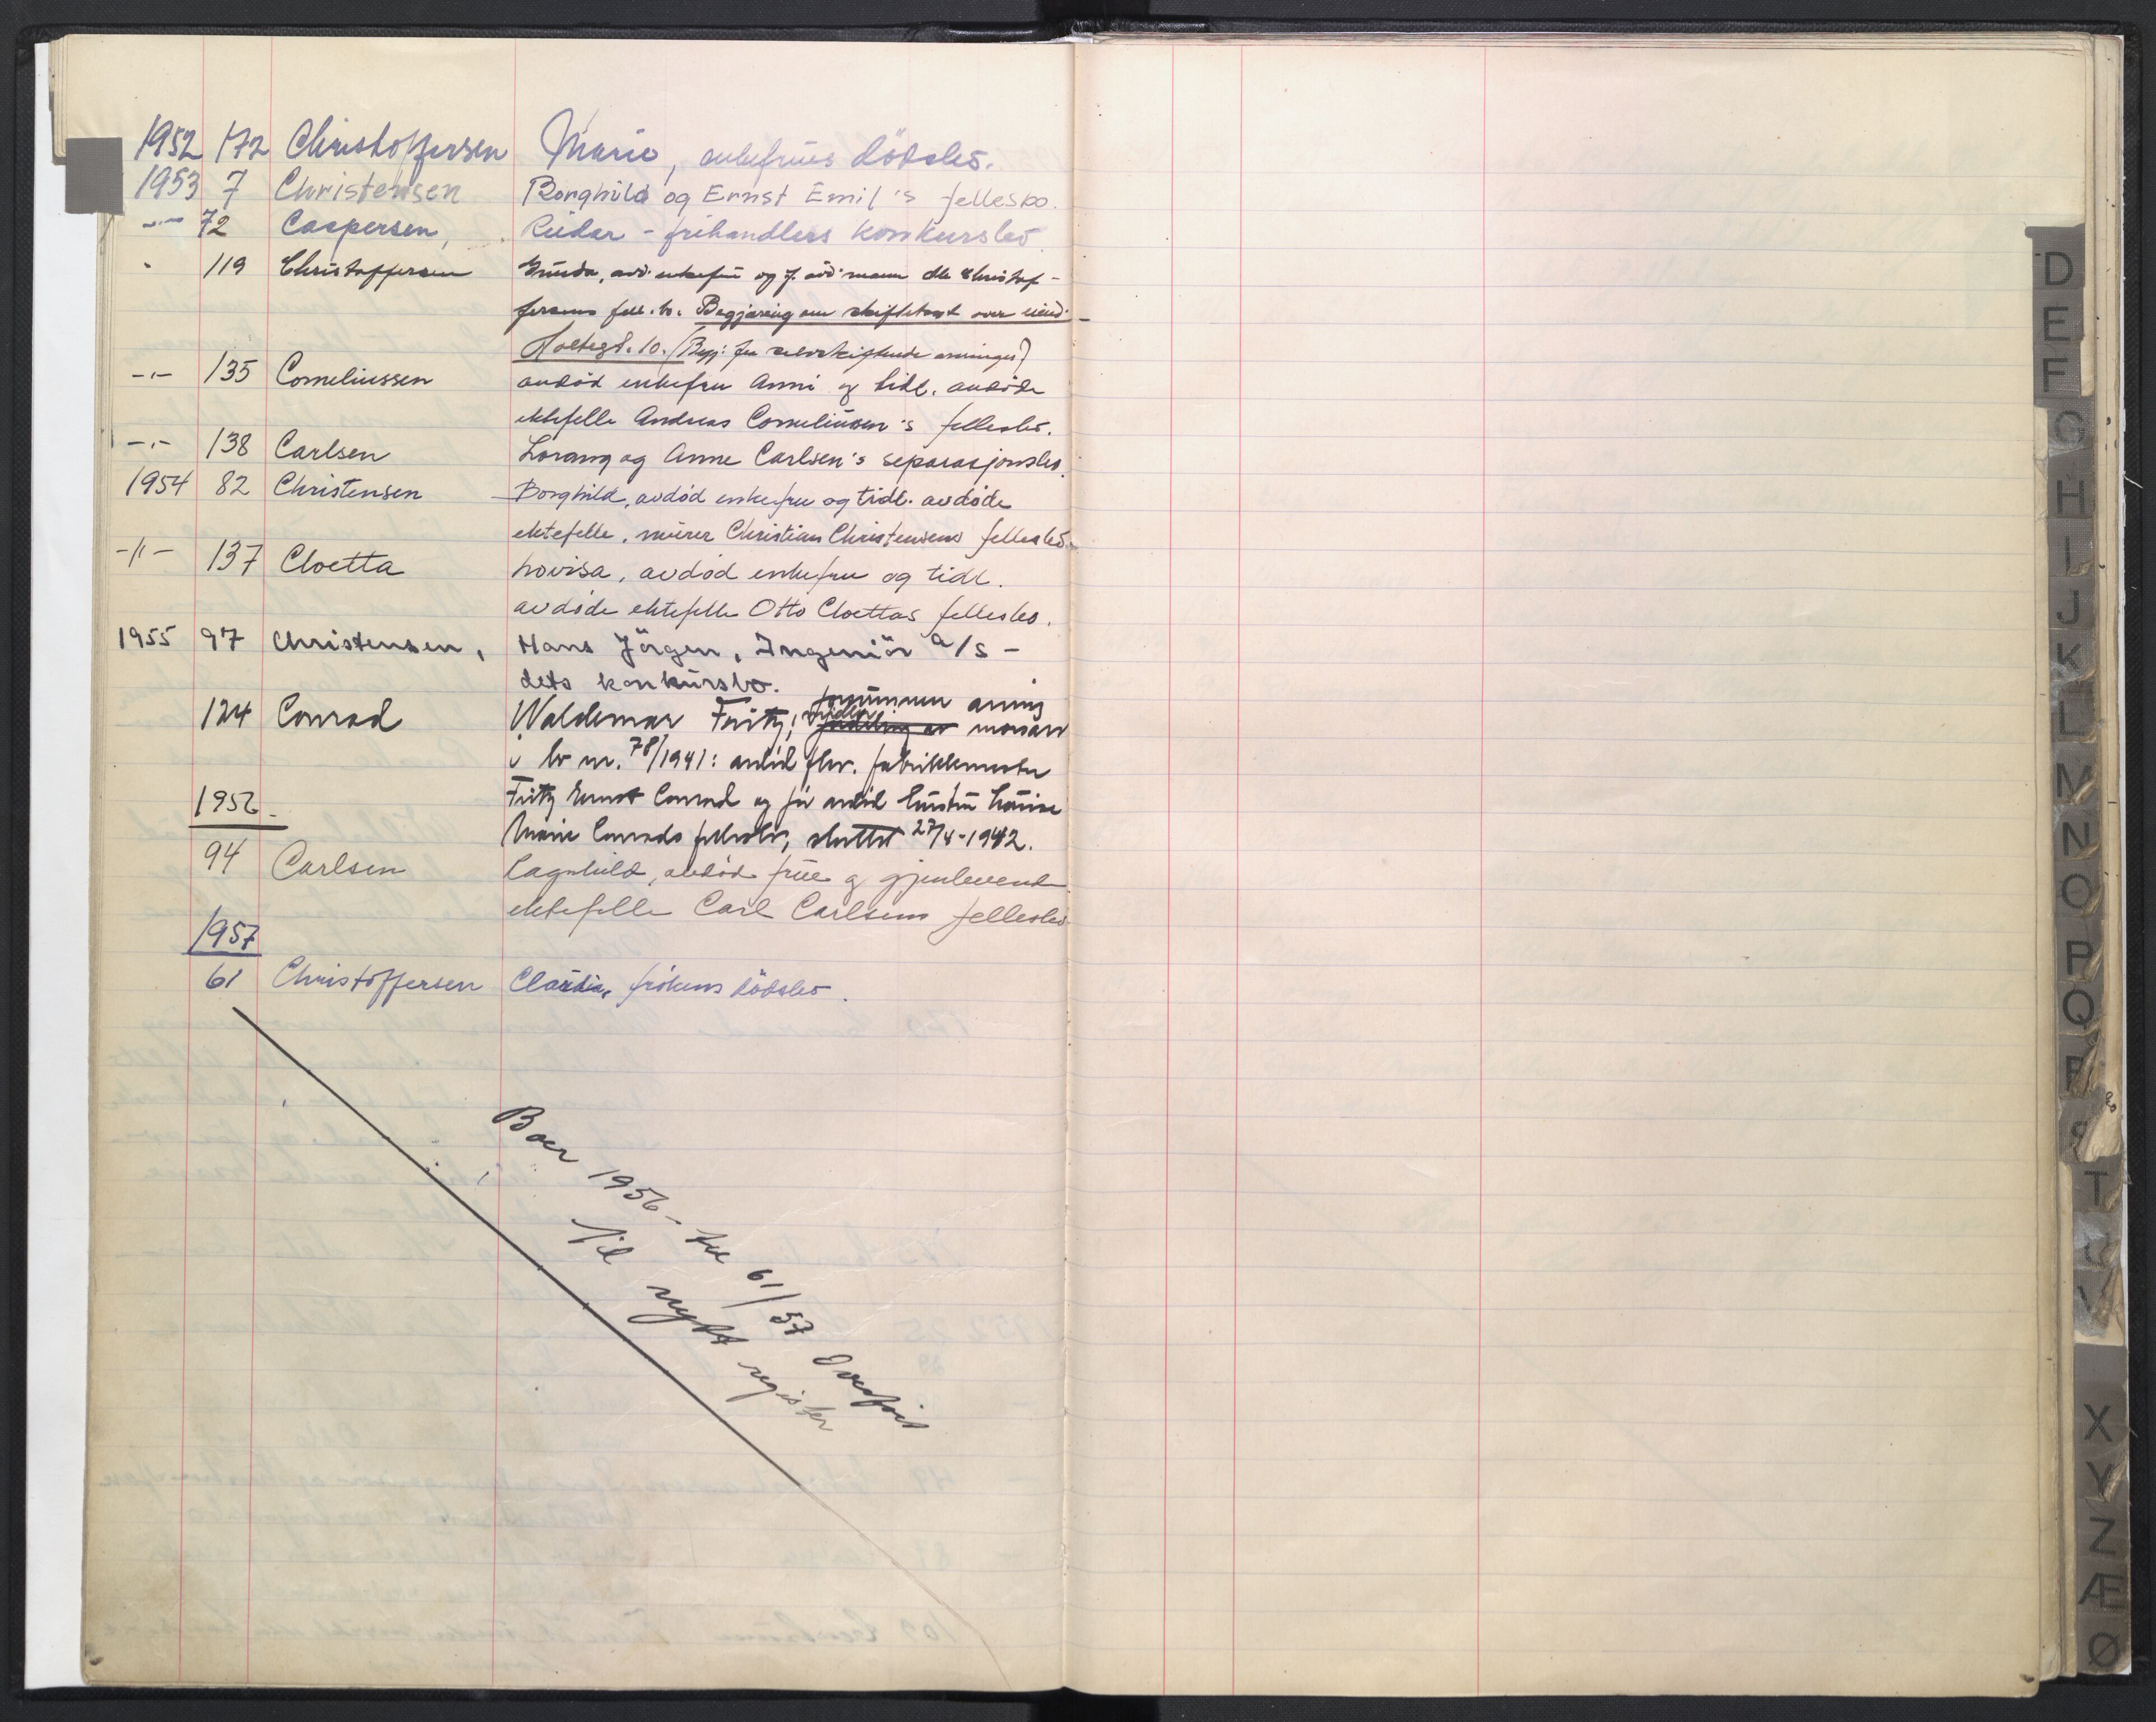 1952 172 Christoffersen Marie, enkefrues dödsbo.
1953 7 Christensen Borghild og Ernst Emil's fellesbo.
-"- 72 Caspersen, Reidar - frihandlers konkursbo.
" 119 Christoffersen Gunda, avd. enkefru og f. avd. mann Christof-
fersens fell. bo. Begjæring om skiftetakst over eiend.
Holtegt. 10. (Begj. fra selvskiftende arvinger)
-"- 135 Corneliussen avdöd enkefru Anni og tidl. avdöde
ektefelle Andreas Corneliussen's fellesbo.
-"- 138 Carlsen Lorang og Anne Carlsen's separasjonsbo.
1954 82 Christensen Borghild, avdød enkefru og tidl. avdøde
ektefelle, murer Christian Christensens fellesbo.
-"- 137 Cloetta Lovisa, avdød enkefru og tidl.
avdøde ektefelle Otto Cloettas fellesbo.
1955 97 Christensen, Hans Jörgen, Ingeniör A/S -
dets konkursbo.
124 Conrad Waldemar Fritz, forsvunnen arving
i bo nr. 78/1941: avdöd fhv. fabrikkmester
Fritz Ernst Conrad og för avdöd hustru Louise
Marie Conrads fellesbo, sluttet 27/4-1942.
1956
94 Carlsen Ragnhild, avdöd frue og gjenlevende
ektefelle Carl Carlsens fellesbo
1957
61 Christoffersen Claudia, frökens dödsbo.
Boer 1956 - til 61/57 overført
til nytt register
D
E
F
G
H
I
J
K
L
M
N
O
P
Q
R
S
T
U
V
X
Y
Z
Æ
Ø